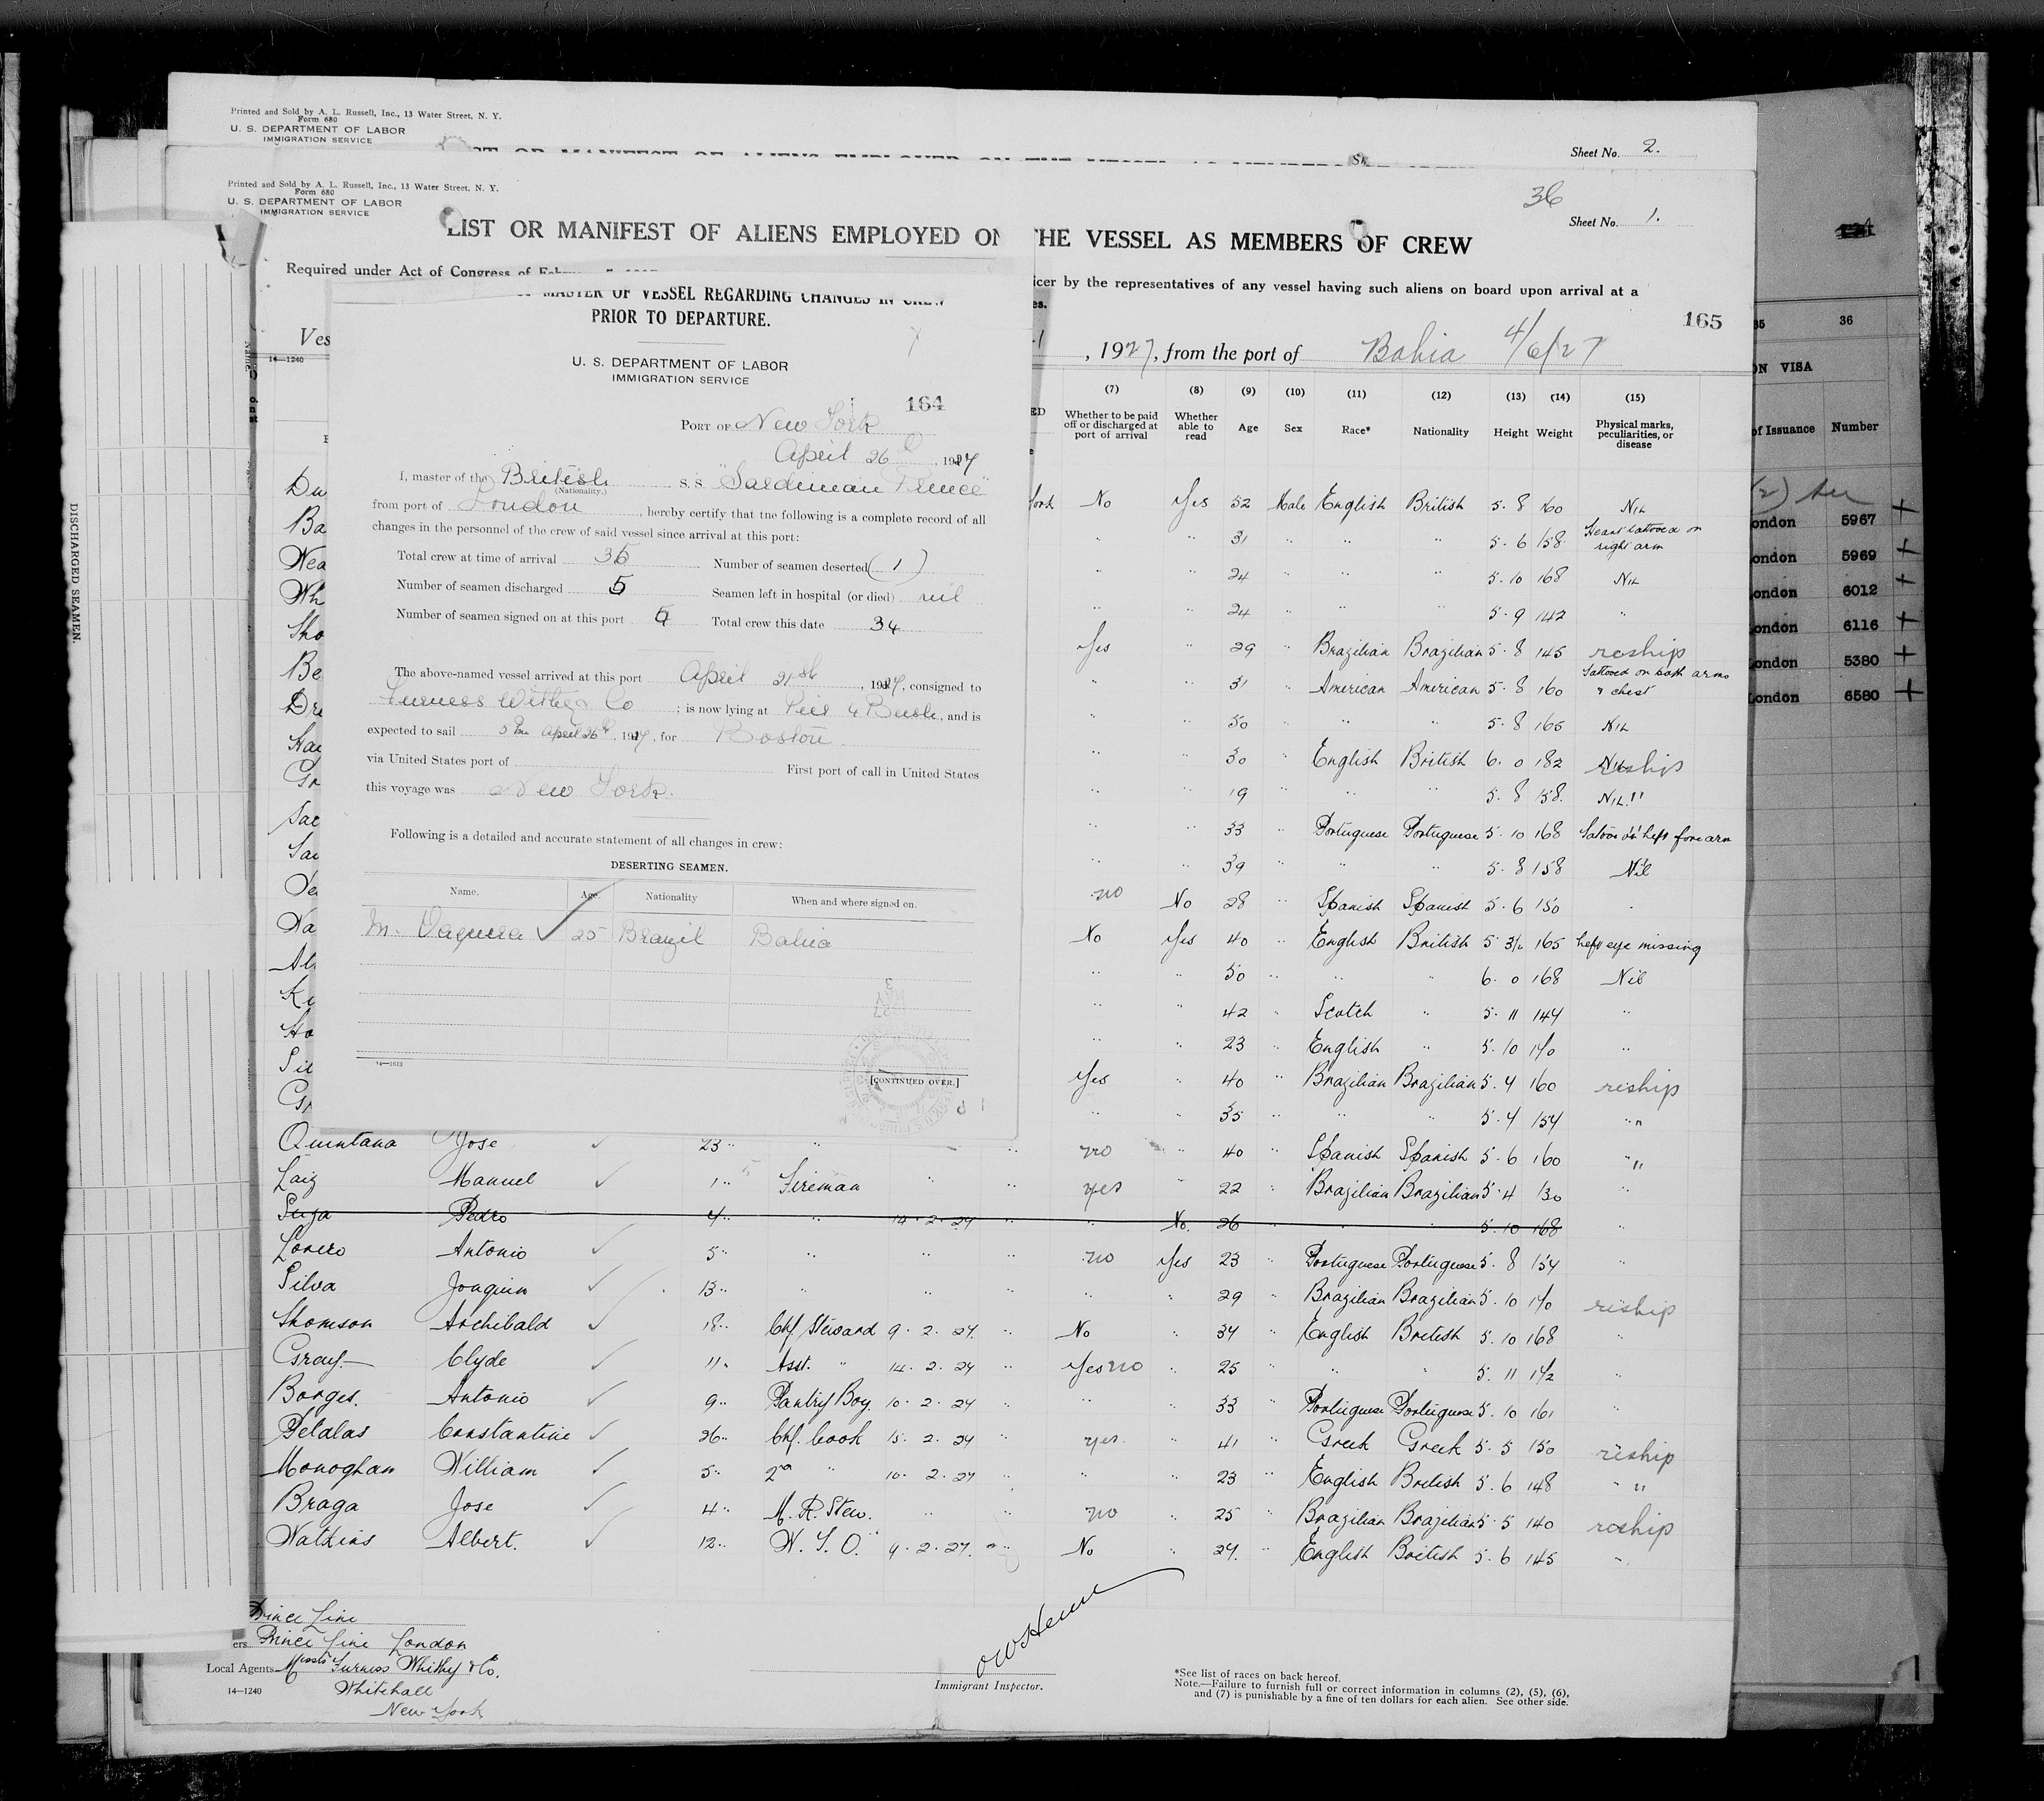 Printed and Sold by A. L. Russell, Inc., 13 Water Street, N. Y.
Form 680
U. S. DEPARTMENT OF LABOR
IMMIGRATION SERVICE
Sheet No. 2.
Printed and Sold by A. L. Russell, Inc., 13 Water Street, N. Y.
Form 680
U. S. DEPARTMENT OF LABOR
IMMIGRATION SERVICE
36
Sheet No. 1.
LIST OR MANIFEST OF ALIENS EMPLOYED ON THE VESSEL AS MEMBERS OF CREW
Required under Act of Congress of
icer by the representatives of any vessel having such aliens on board upon arrival at a
es.
165
Ves
, 1927, from the port of Bahia 4/6/27
14—1240
MASTER OF VESSEL REGARDING CHANGES IN CREW
PRIOR TO DEPARTURE.
U. S. DEPARTMENT OF LABOR
IMMIGRATION SERVICE
164
PORT OF New York
April 26, 1927
I, master of the British S. S. "Sardinian Prince"
(Nationality.)
from port of London, hereby certify that the following is a complete record of all
changes in the personnel of the crew of said vessel since arrival at this port:
Total crew at time of arrival 35 Number of seamen deserted (1)
Number of seamen discharged 5 Seamen left in hospital (or died) nil
Number of seamen signed on at this port Total crew this date 34
The above-named vessel arrived at this port April 21st, 1927, consigned to
Furness Withy & Co; is now lying at Pier 4 Bush, and is
expected to sail 5 Pm April 26th, 1927, for Boston
via United States port of First port of call in United States
this voyage was New York.
Following is a detailed and accurate statement of all changes in crew:
DESERTING SEAMEN.
Name. Age. Nationality When and where signed on.
M. Vaquera 25 Brazil Bahia
14—1613
[CONTINUED OVER.]
DISCHARGED SEAMEN.
(7) (8) (9) (10) (11) (12) (13) (14) (15)
Whether to be paid off or discharged at port of arrival Whether able to read Age Sex Race* Nationality Height Weight Physical marks, peculiarities, or disease
Du York No Yes 52 Male English British 5. 8 160 Nil
Ba " " 31 " " " 5. 6 158 Heart tattooed on right arm
Nea " " 24 " " " 5. 10 168 Nil
Wh " " 24 " " " 5. 9 142 "
Tho Yes " 29 " Brazilian Brazilian 5. 8 145 reship
Be " " 31 " American American 5. 8 160 Tattooed on both arms " chest
Dre " " 50 " " " 5. 8 165 Nil
Har " " 30 " English British 6. 0 182 Nil reship
Gr " " 19 " " " 5. 8 158. Nil "
Sac " " 33 " Portuguese Portuguese 5. 10 168 Left fore arm
Sar " " 39 " " " 5. 8 158 Nil
no No 28 " Spanish Spanish 5. 6 150
Wa No Yes 40 " English British 5 3½ 165 Left eye missing
" " 50 " " " 6. 0 168 Nil
" " 42 " Scotch " 5. 11 144 "
Ho " " 23 " English " 5. 10 140 "
Sil Yes " 40 " Brazilian Brazilian 5. 4 160 reship
" " 35 " " " 5. 4 154 "
Quintana Jose 23 " " no " 40 " Spanish Spanish 5. 6 160 "
Laiz Manuel 1 " Fireman " " yes " 22 " Brazilian Brazilian 5. 4 130 "
Suza Pedro 4 " " 14. 2. 27 " " No. 26 " " " 5. 10 168 "
Lorero Antonio 5 " " " " no Yes 23 " Portuguese Portuguese 5. 8 154 "
Silva Joaquim 13 " " " " " " 29 " Brazilian Brazilian 5. 10 140 reship
Thomson Archibald 18 " Chf. Steward 9. 2. 27. " No " 34 " English British 5. 10 168 "
Gray Clyde 11 " Asst. " 14. 2. 27 " Yes no " 25 " " " 5. 11 142 "
Borges. Antonio 9 " Pantry Boy. 10. 2. 27 " " " 33 " Portuguese Portuguese 5. 10 161 "
Petalas Constantine 26 " Chf. Cook 15. 2. 27 " yes. " 41 " Greek Greek 5. 5 150 reship
Monoghan William 5 " 2nd " 10. 2. 27 " " " 23 " English British 5. 6 148 "
Braga Jose 4 " M. R. Stew. " " no " 25 " Brazilian Brazilian 5. 5 140 reship
Watkins Albert. 12 " W. T. O. 9. 2. 27. " No " 24. " English British 5. 6 145 "
Prince Line
ers Prince Line London
Local Agents Messrs Furness Whithy & Co.
14—1240 Whitehall
New York
Immigrant Inspector.
*See list of races on back hereof.
Note.—Failure to furnish full or correct information in columns (2), (5), (6),
and (7) is punishable by a fine of ten dollars for each alien. See other side.
35 36
ON VISA
of Issuance Number
ondon 5967
ondon 5969
ondon 6012
ondon 6116
ondon 5380
ondon 6580